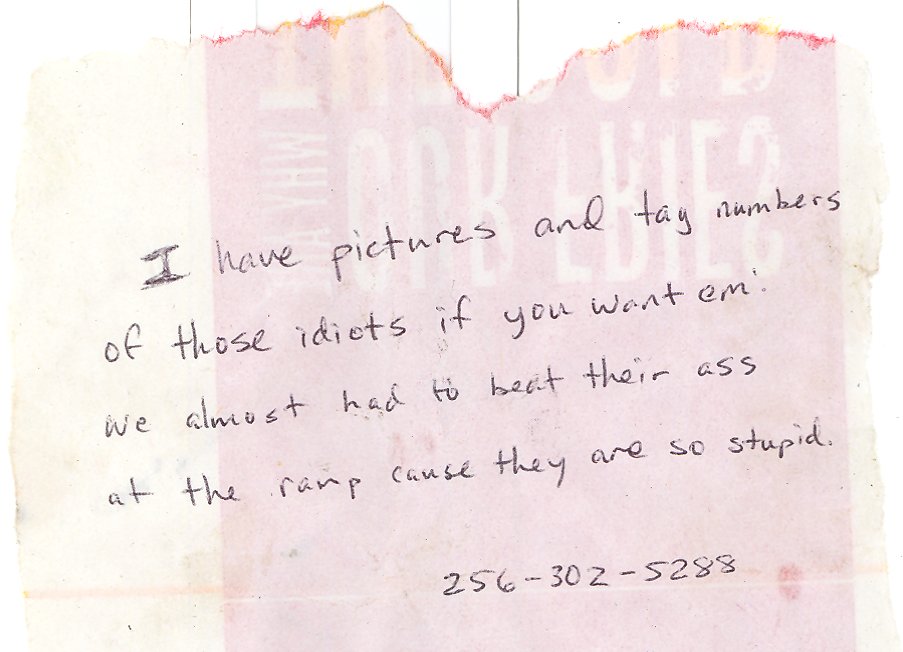 I have pictures and tag numbers
of those idiots if you want em'.
we almost had to beat their ass
at the ramp cause they are so stupid.
256-302-5288